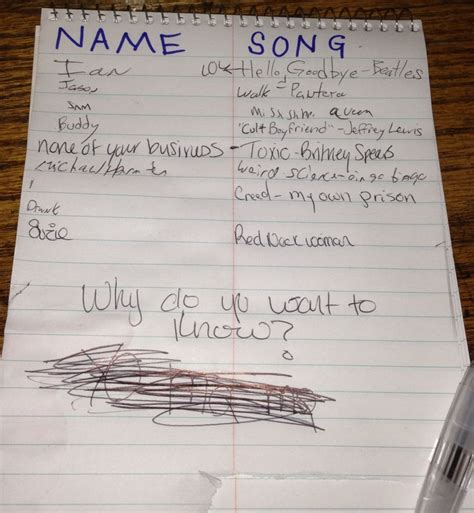 NAME SONG
Ian Hello, Goodbye - Beatles
Jason Walk - Pantera
SAM Queen
Buddy "Cult Boyfriend" - Jeffrey Lewis
none of your business - Toxic - Britney Spears
Michael weird science - oingo boingo
Creed - my own prison
Drunk
Suzie Red Neck woman
Why do yo want to
know?